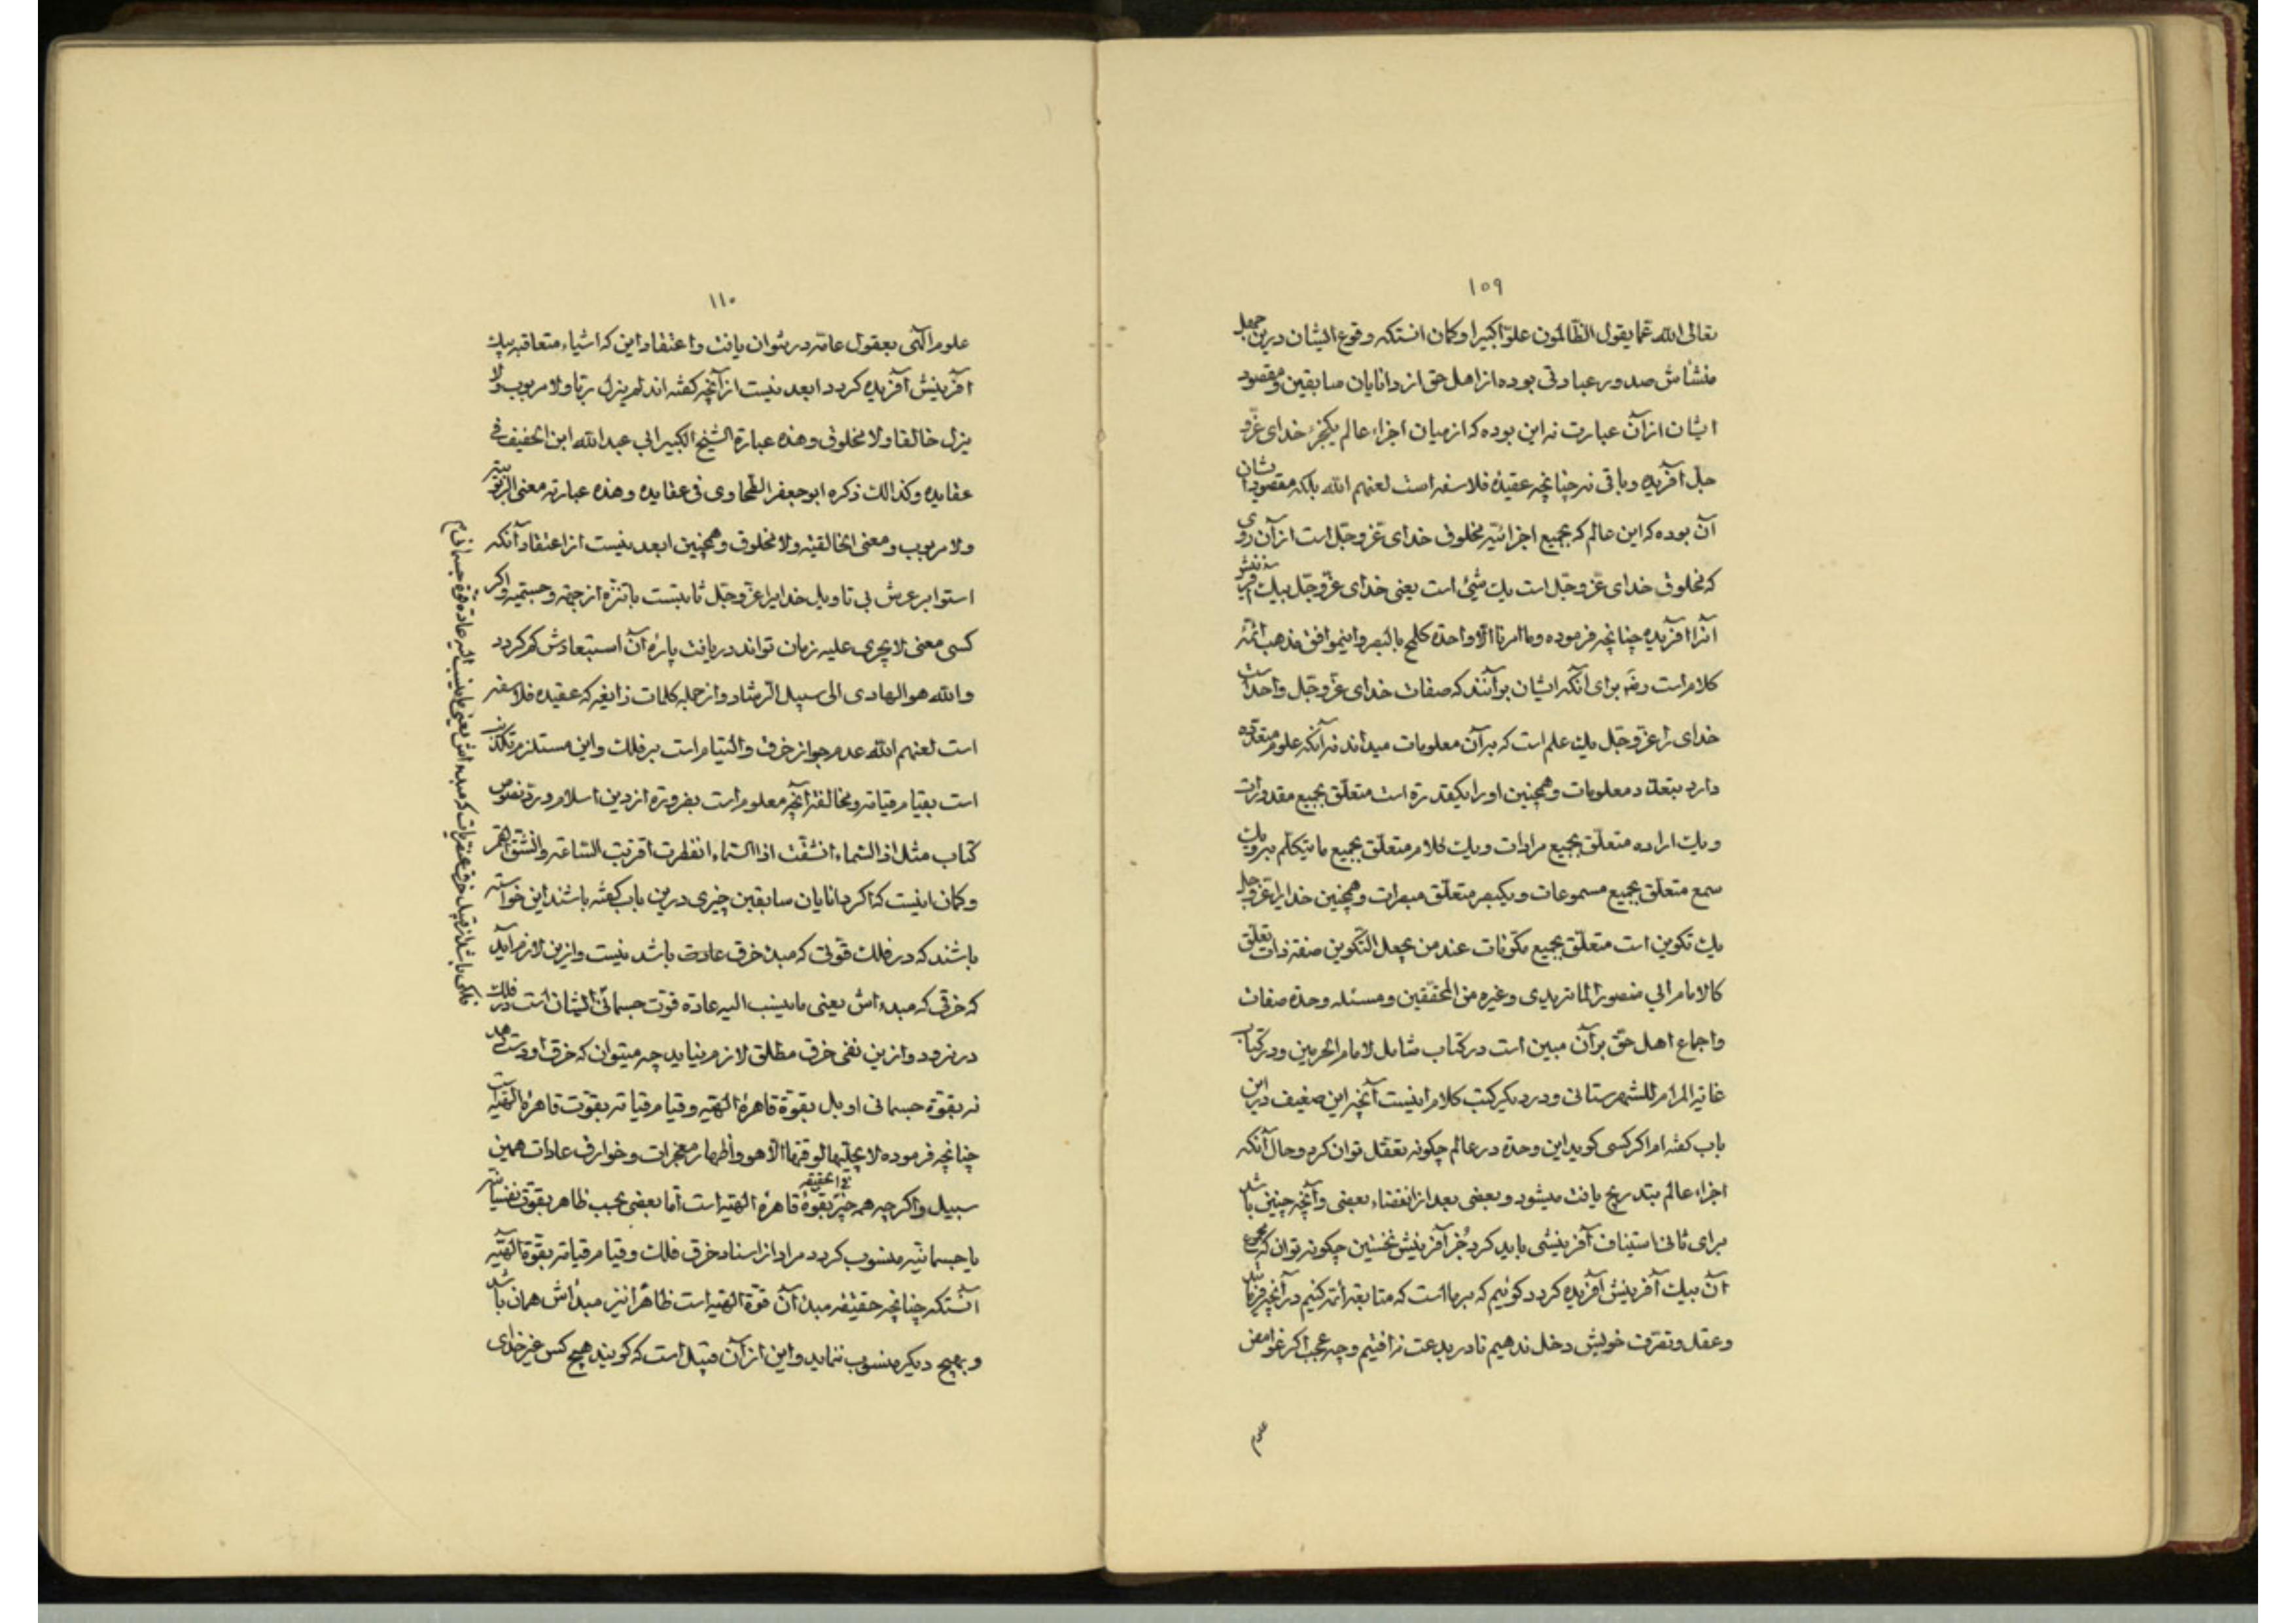 ١٥٩
تعالی الله عما یقول الظالمون علوّا کبیرا و کمان انستکه وقوع ایشان درین جهل
منشأش صدور عبادتی بوده از اهل حق از دانایان سابقین و مقصود
ایشان از آن عبارت نه این بوده که از میان اجزاء عالم یکجزء خدای عزّ و
جل آفریده و باقی نه چنانچه عقیدهٔ فلاسفه است لعنهم الله بلکه مقصود ایشان
آن بوده که این عالم که بجمیع اجزائیّه مخلوق خدای عزّ وجلّ است از آن روی
که مخلوق خدای عزّ وجلّ است یك شیئ است یعنی خدای عزّ وجلّ بیك آفرینش
آنرا آفریده چنانچه فرموده وما امرنا الّا واحدة کلمح بالبصر و اینموافق مذهب ائمّه
کلام است رضه برای آنکه ایشان برآنند که صفات خدای عزّ وجلّ واحد است
خدای را عزّ وجلّ یك علم است که بر آن معلومات میداند نه آنکه علوم متعدّده
دارد بتعدّد معلومات و همچنین او را یکقدرة است متعلّق بجمیع مقدورات
و یك اراده متعلّق بجمیع مرادات و یك کلام متعلّق بجمیع ما یتکلّم به و یك
سمع متعلّق بجمیع مسموعات و یکبصر متعلّق مبصرات و همچنین خدایرا عزّ وجلّ
یك تکوین است متعلّق بجمیع مکوّنات عند من یجعل التّکوین صفة ذات تعلّق
کالامام ابی منصور الماتریدی وغیره من المحقّقین و مسئله وحدة صفات
و اجماع اهل حقّ بر آن مبین است در کتاب شامل لامام الحرمین و در کتاب
غایة المرام للشهرستانی و در دیکر کتب کلام اینست آنچه این ضعیف درین
باب کفته اما اکر کسی کوید این وحدة در عالم چکونه تعقّل توان کرد و حال آنکه
اجزاء عالم بتدریج یافت میشود و بعضی بعد از انقضاء بعضی و آنچه چنین باشد
برای ثانی استیناف آفرینشی باید کرد جُز آفرینش نخستین چکونه توان که مجموع
آن بیك آفرینش آفریده کردد کوئیم که بر ما است که متابعة ائمّه کنیم در آنچه فرمایند
و عقل و تصرّف خویش دخل ندهیم تا در بدعت نه افتیم و چه عجب اکر غوامض
علوم
١١٠
علوم الٓهی بعقول عامّه در نتوان یافت و اعتقاد این که اشیاء متعاقبه بیك
آفرینش آفریده کردد ابعد نیست از آنچه کفته اند لم یزل ربّا ولا مربوب ولا
یزل خالقا ولا مخلوق وهذه عبارة الشّیخ الکبیر ابی عبد الله ابن الخفیف فی
عقایده وکذالك ذکره ابو جعفر الطّحاوی فی عقایده وهذه عبارته معنی الرّبوبیّة
ولا مربوب ومعنی الخالقیّة ولا مخلوق و همچنین ابعد نیست از اعتقاد آنکه
استوا بر عرش بی تاویل خدایرا عزّ وجلّ ثابتست با تنزّه از جهة و جسمیّه و اکر
کسی معنی لا یجری علیه زمان تواند دریافت پارهٔ آن استبعادش کم کردد
والله هو الهادی الی سبیل الرشاد و از جمله کلمات زایغه که عقیده فلاسفه
است لعنهم الله عدم جواز خرق و التیام است بر فلك و این مستلزم تکذیب
است بقیام قیامة و مخالفة آنچه معلوم است بضرورة از دین اسلام و ردّ نصوص
کتاب مثل اذا السّماء انشقّت اذا السّماء انفطرت اقتربت السّاعة وانشقّ القمر
و کمان اینست که اکر دانایان سابقین چیزی درین باب کفته باشند این خواسته
باشند که در فلك قوّتی که مبدء خرق عادت باشد نیست و ازین لازم آید
که خرقی که مبدء اش یعنی ما ینسب الیه عادة قوّت جسمانی ایشان است در فلك
در نرود و ازین نفی خرق مطلق لازم نیاید چه میتوان که خرق او دست دهد
نه بقوّة جسمانی او بل بقوّة قاهرهٔ الهیّه و قیام قیامة بقوّت قاهرهٔ الهیّه است
چنانچه فرموده لا یجلّیها لوقتها الّا هو و اظهار معجزات و خوارق عادات همین
سبیل و اکر چه همه چیز بقوّة قاهرهٔ الهیّه است فی الحقیقه امّا بعضی بحسب ظاهر بقوّتی نفسانیّه
یا جسمانیّه منسوب کردد مراد از اسناد خرق فلك و قیام قیامة بقوّة الٓهیّه
آنستکه چنانچه حقیقة مبدء آن قوّة الهیّه است ظاهرا نیز مبداش همان باشد
و بهیچ دیکر منسوب ننماید و این از آن قبیل است که کویند هیچ کس غیر خدای